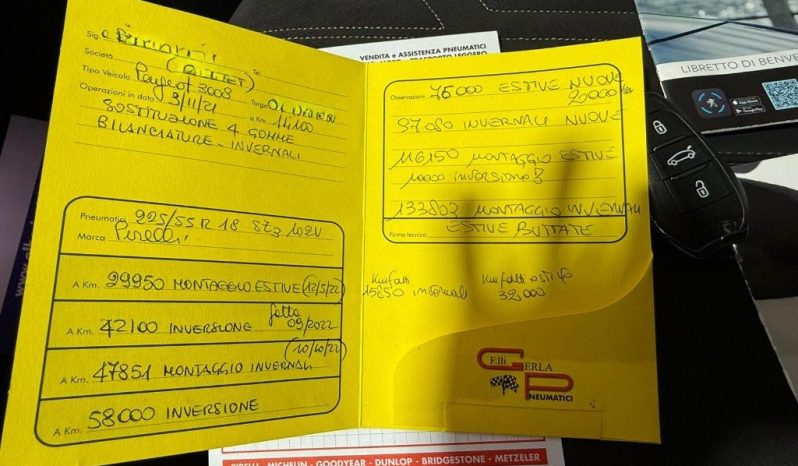 Sig.
Società
Tel.
Tipo Veicolo Peugeot 3008 Targa
Operazioni in data 3/11/21 a Km. 14100
SOSTITUZIONE 4 GOMME
BILANCIATURE - INVERNALI
Pneumatici 225/55 R 18 102V
Marca Pirelli
A Km. 29950 MONTAGGIO ESTIVE (12/5/22)
A Km. 42100 INVERSIONE fatto 09/2022
A Km. 47851 MONTAGGIO INVERNALI (10/10/22)
A Km. 58000 INVERSIONE
VENDITA e ASSISTENZA PNEUMATICI
TRASPORTO LEGGERO
Osservazioni 75000 ESTIVE NUOVE
20000 km
97080 INVERNALI NUOVE
116150 MONTAGGIO ESTIVE
10000 INVERSIONE
133802 MONTAGGIO INVERNALI
Firma tecnico ESTIVE BUTTATE
Km fatti 15850 invernali
Km fatti estive 32000
F.lli GERLA
PNEUMATICI
PIRELLI - MICHELIN - GOODYEAR - DUNLOP - BRIDGESTONE - METZELER
LIBRETTO DI BENVE
App Store
Google Play